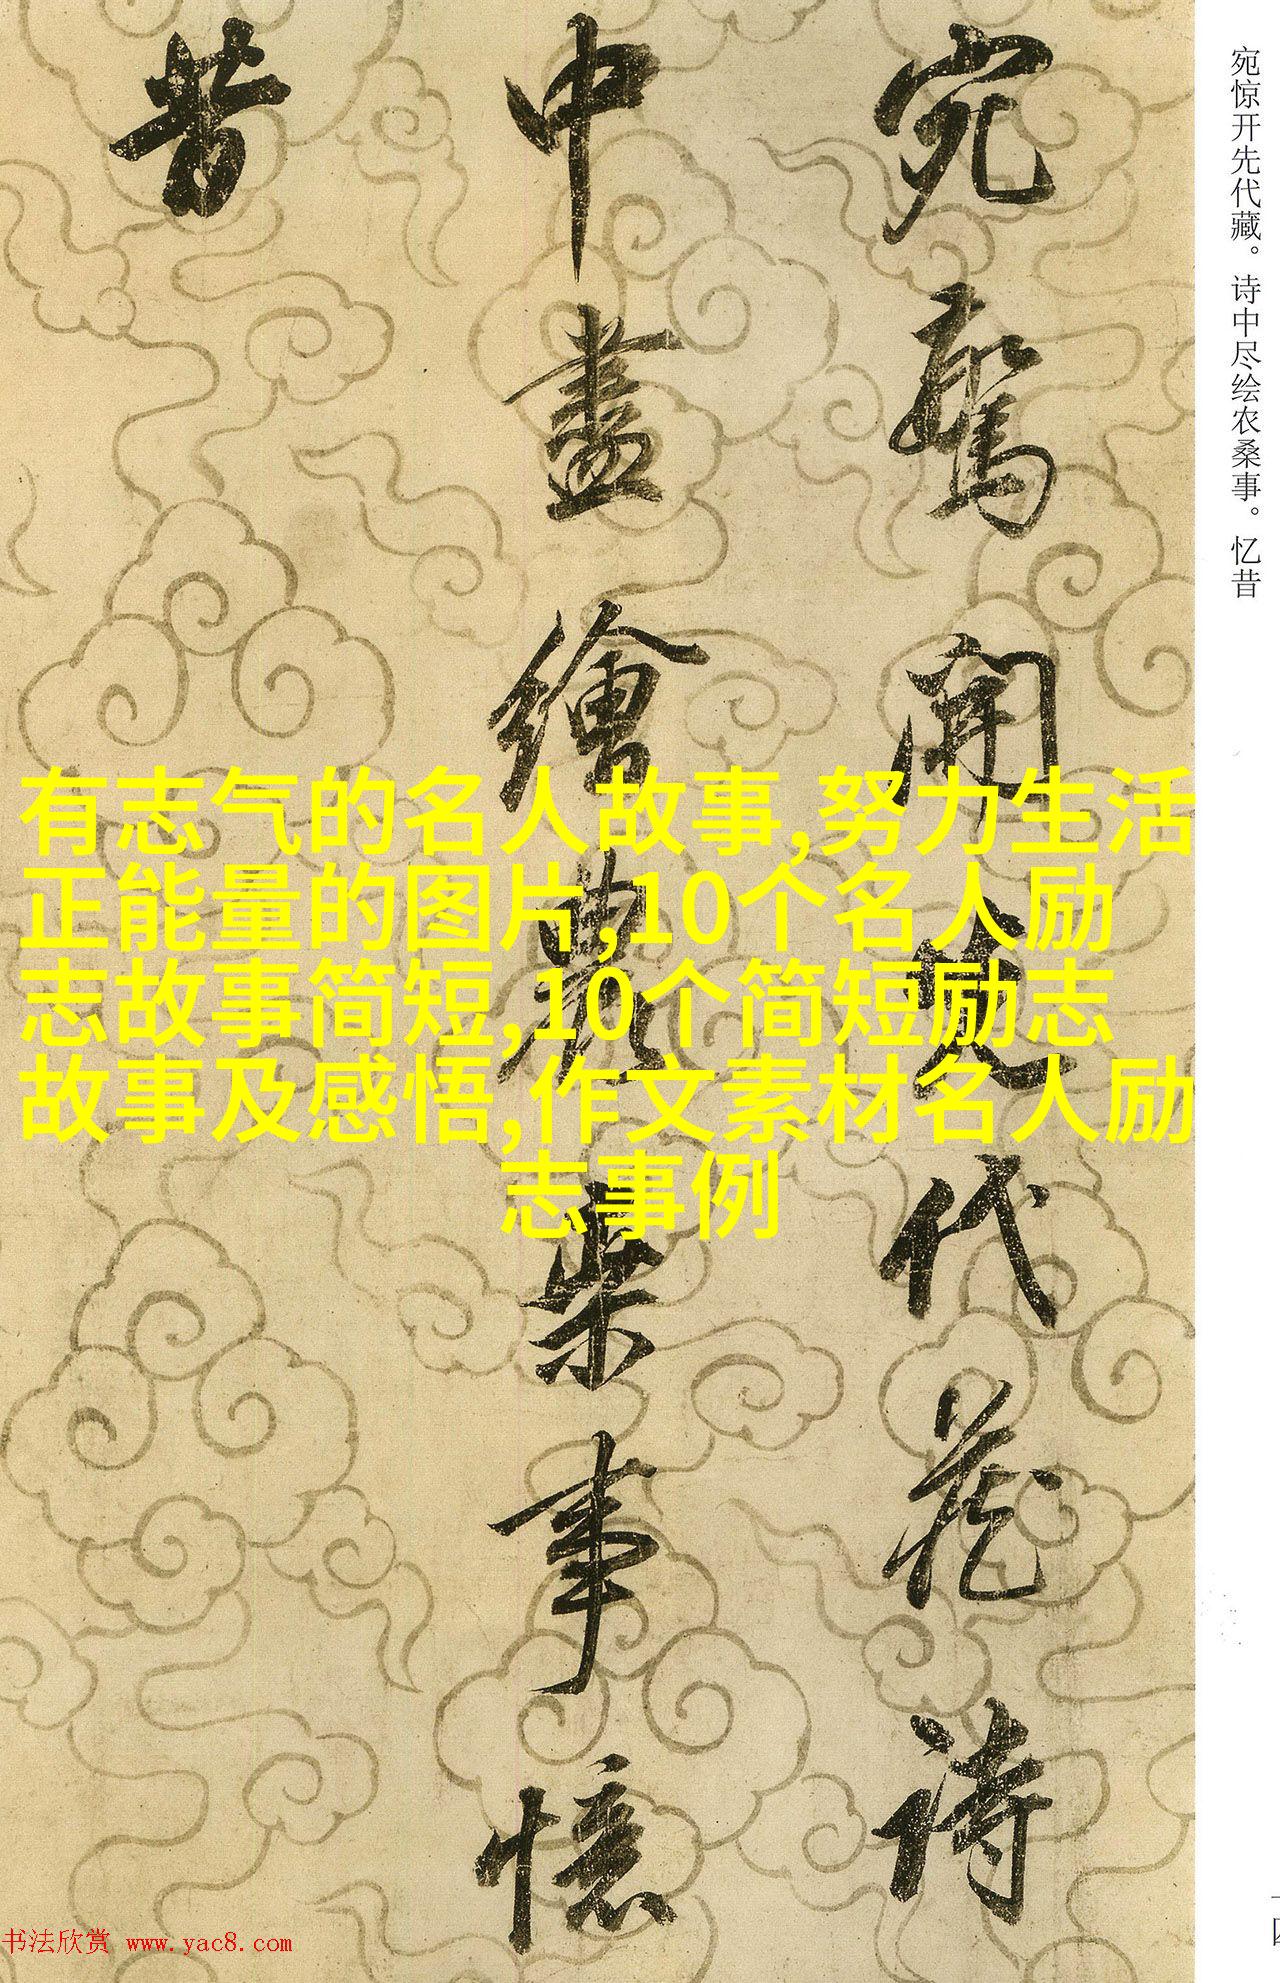 宛驚開先代藏詩
中盡繪農桑事憶
昔
宛惊开先代藏。诗中尽绘农桑事。忆昔
有志气的名人故事,努力生活
正能量的图片,10个名人励
志故事简短,10个简短励志
故事及感悟,作文素材名人励
志事例
书法欣赏 www.yac8.com